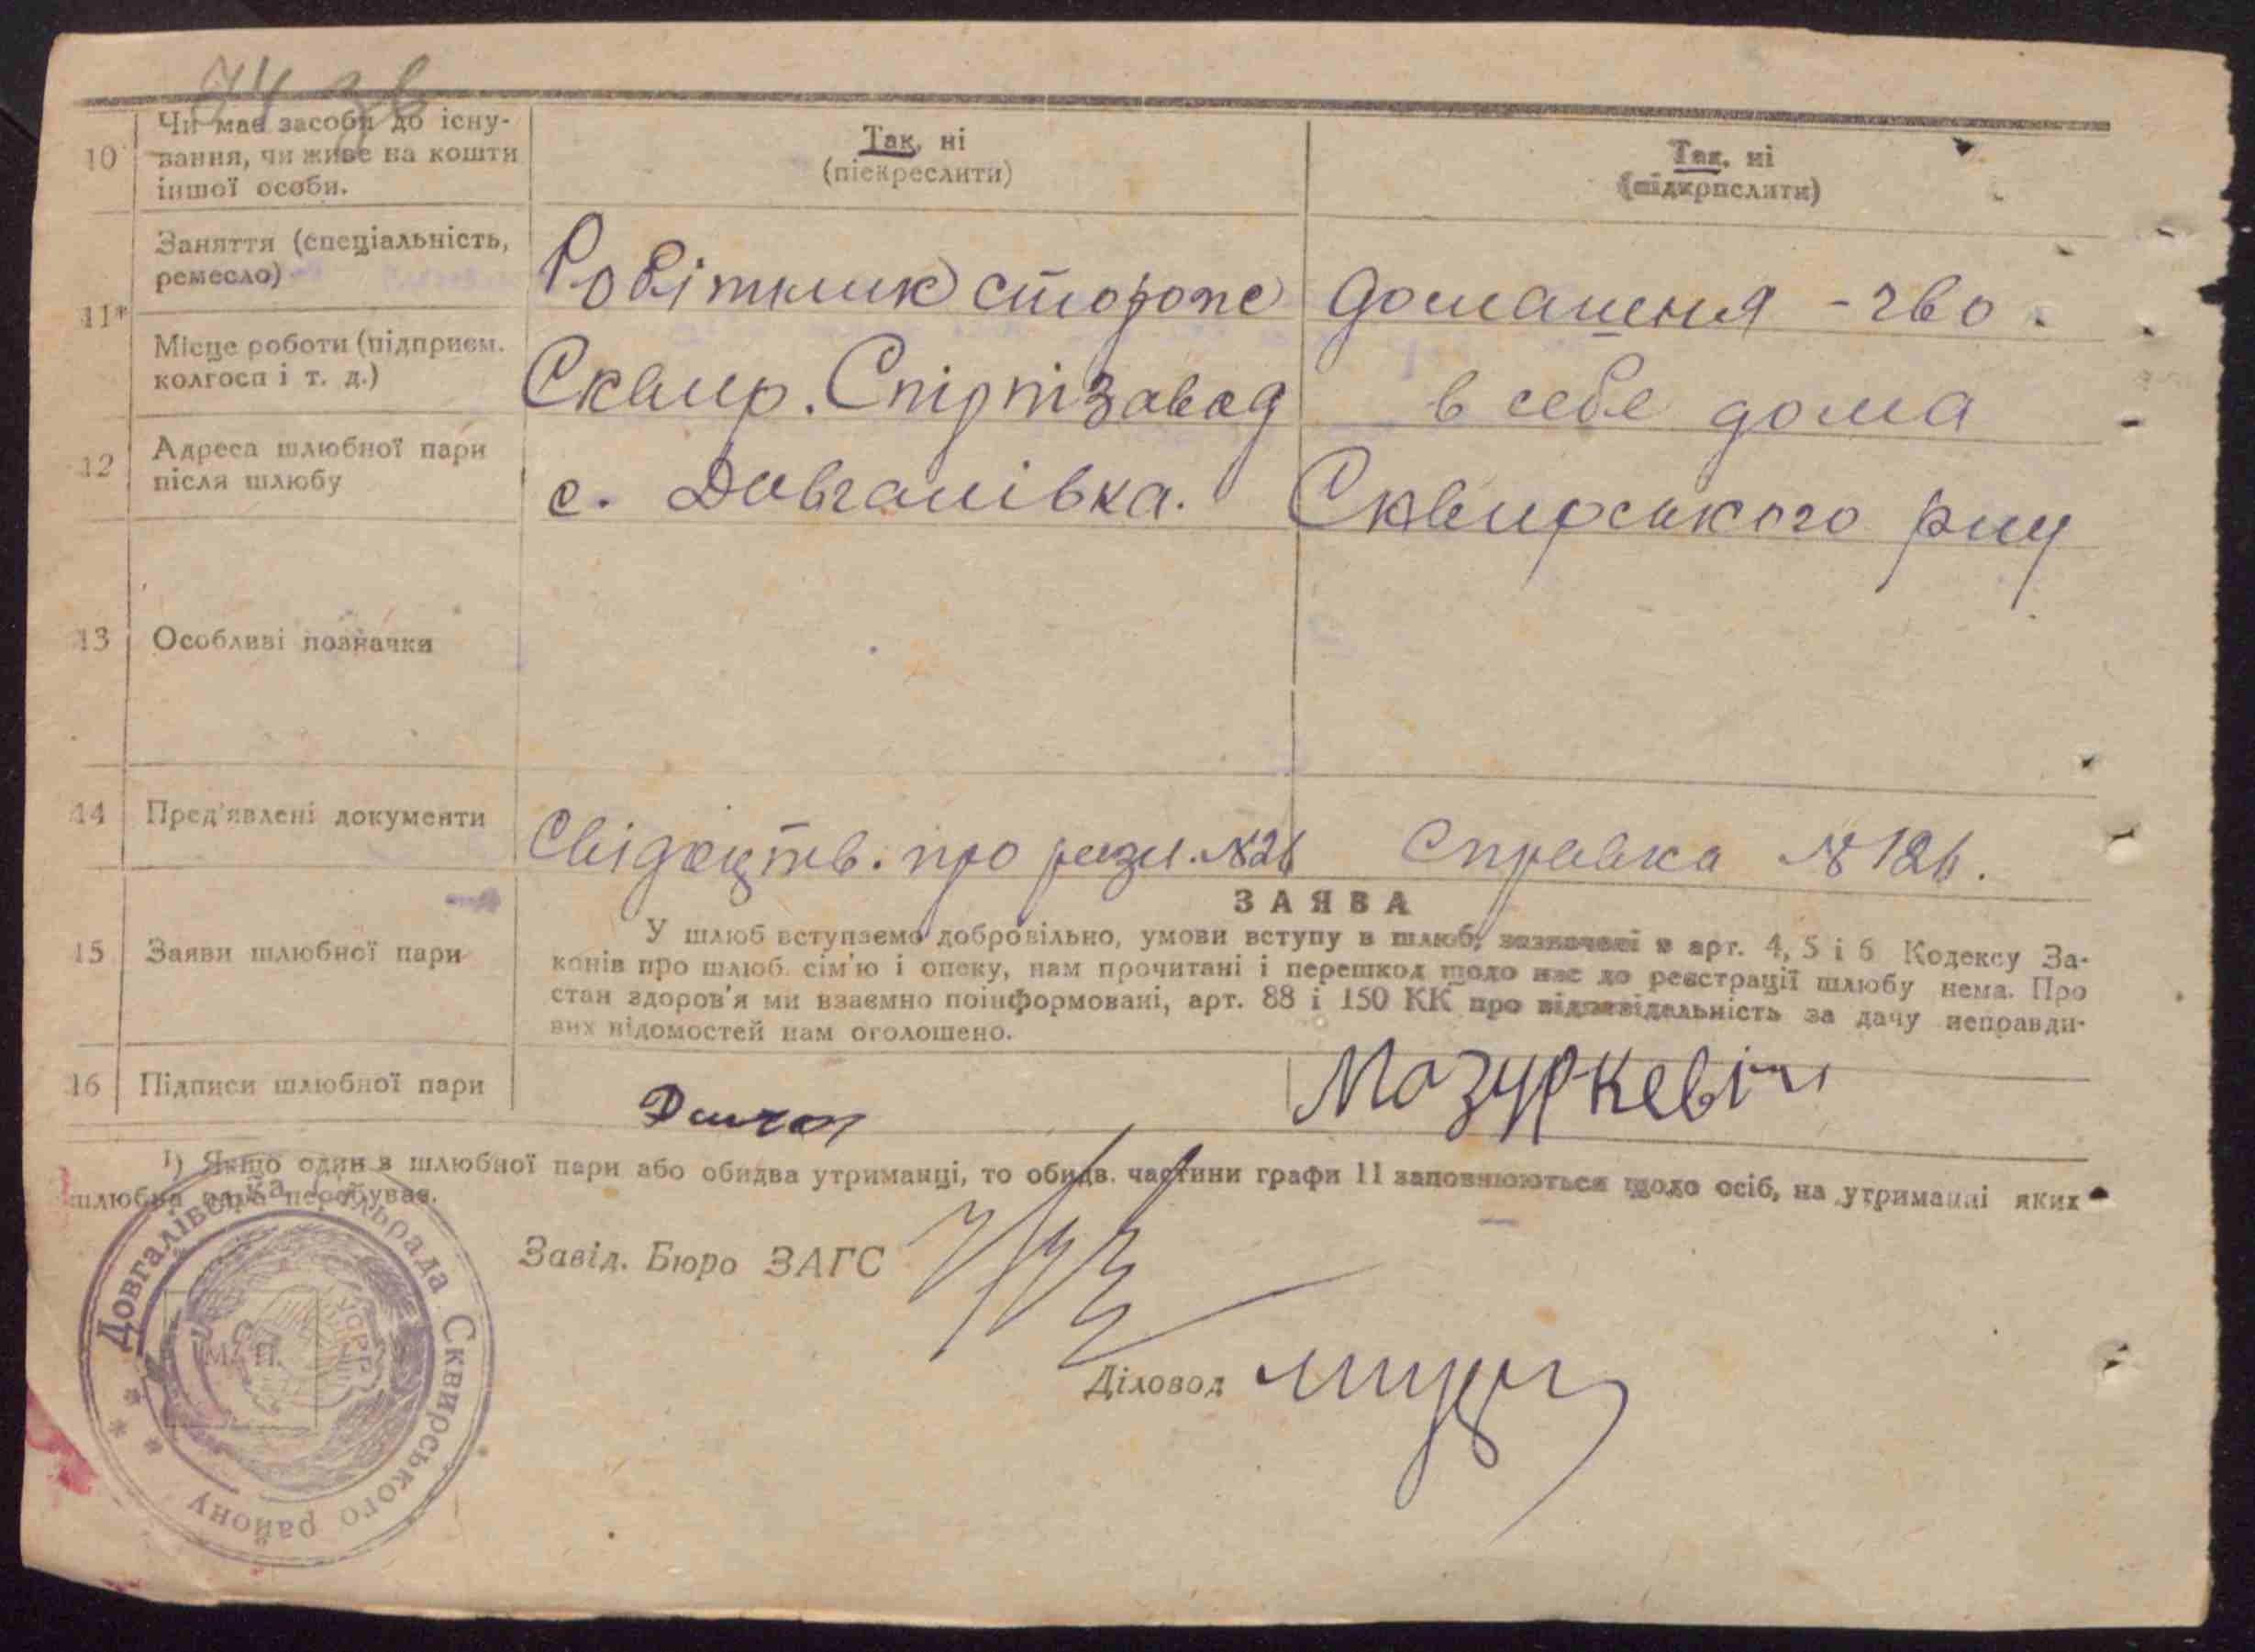 74 зв
10 Чи має засоби до існу-
вання, чи живе на кошти
іншої особи.
Так, ні
(піскреслити)
Так, ні
(підкрпслити)
11*
Заняття (спеціальність,
ремесло)
Робітник стороже
домашння - гво.
Місце роботи (підприєм.
колгосп і т. д.)
Сквир. Спіртзавод
в себе дома
12 Адреса шлюбної пари
після шлюбу
с. Довгалівка. Сквирського р-ну
13 Особливі позначки
14 Пред'явлені документи
Свідоцтв. про розл. №26
Справка № 126.
ЗАЯВА
15 Заяви шлюбної пари
У шлюб вступаємо добровільно, умови вступу в шлюб, зазначені в арт. 4, 5 і 6 Кодексу За-
конів про шлюб. сім'ю і опеку, нам прочитані і перешкод щодо нас до реєстрації шлюбу нема. Про
стан здоров'я ми взаємно поінформовані, арт. 88 і 150 КК про відповідальність за дачу неправди-
вих відомостей нам оголошено.
16 Підписи шлюбної пари
Мазуркевіч
¹) Якщо один з шлюбної пари або обидва утриманці, то обидв. частини графи 11 заповнюються щодо осіб, на утриманні яких
шлюбна пара перебуває.
Завід. Бюро ЗАГС
Діловод
М. П.
Довгалівська сільрада Сквирського району
УСРР